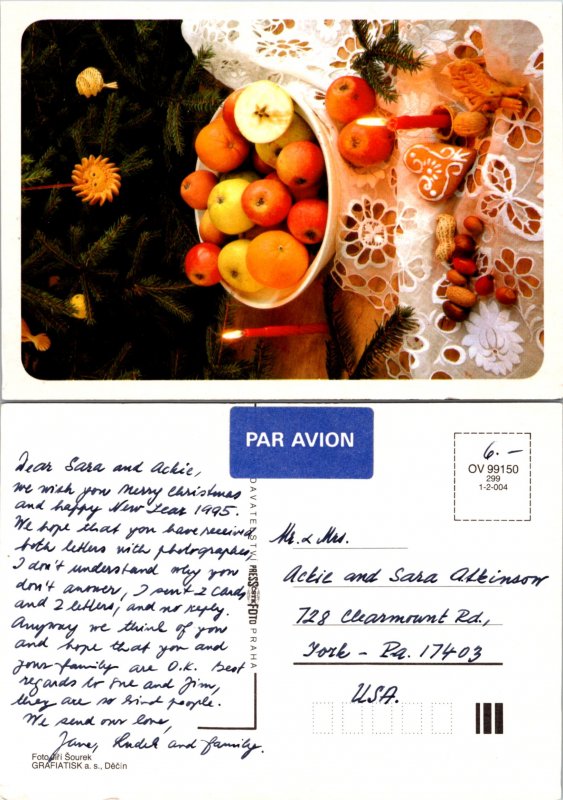 PAR AVION
Dear Sara and Ackie,
we wish you Merry Christmas
and happy New Year 1995.
We hope that you have received
both letters with photographies,
I don't understand why you
don't answer, I sent 2 cards
and 2 letters, and no reply.
Anyway we think of you
and hope that you and
your family are O.K. Best
regards to and Jim,
they are so kind people.
We send our love,
Jane, and family.
Foto Jiří Šourek
GRAFIATISK a. s., Děčín
DAVATELSTVÍ PRESSFOTO PRAHA
6.—
OV 99150
299
1-2-004
Mr. & Mrs.
Ackie and Sara Atkinson
728 Clearmount Rd.,
York - Pa. 17403
USA.